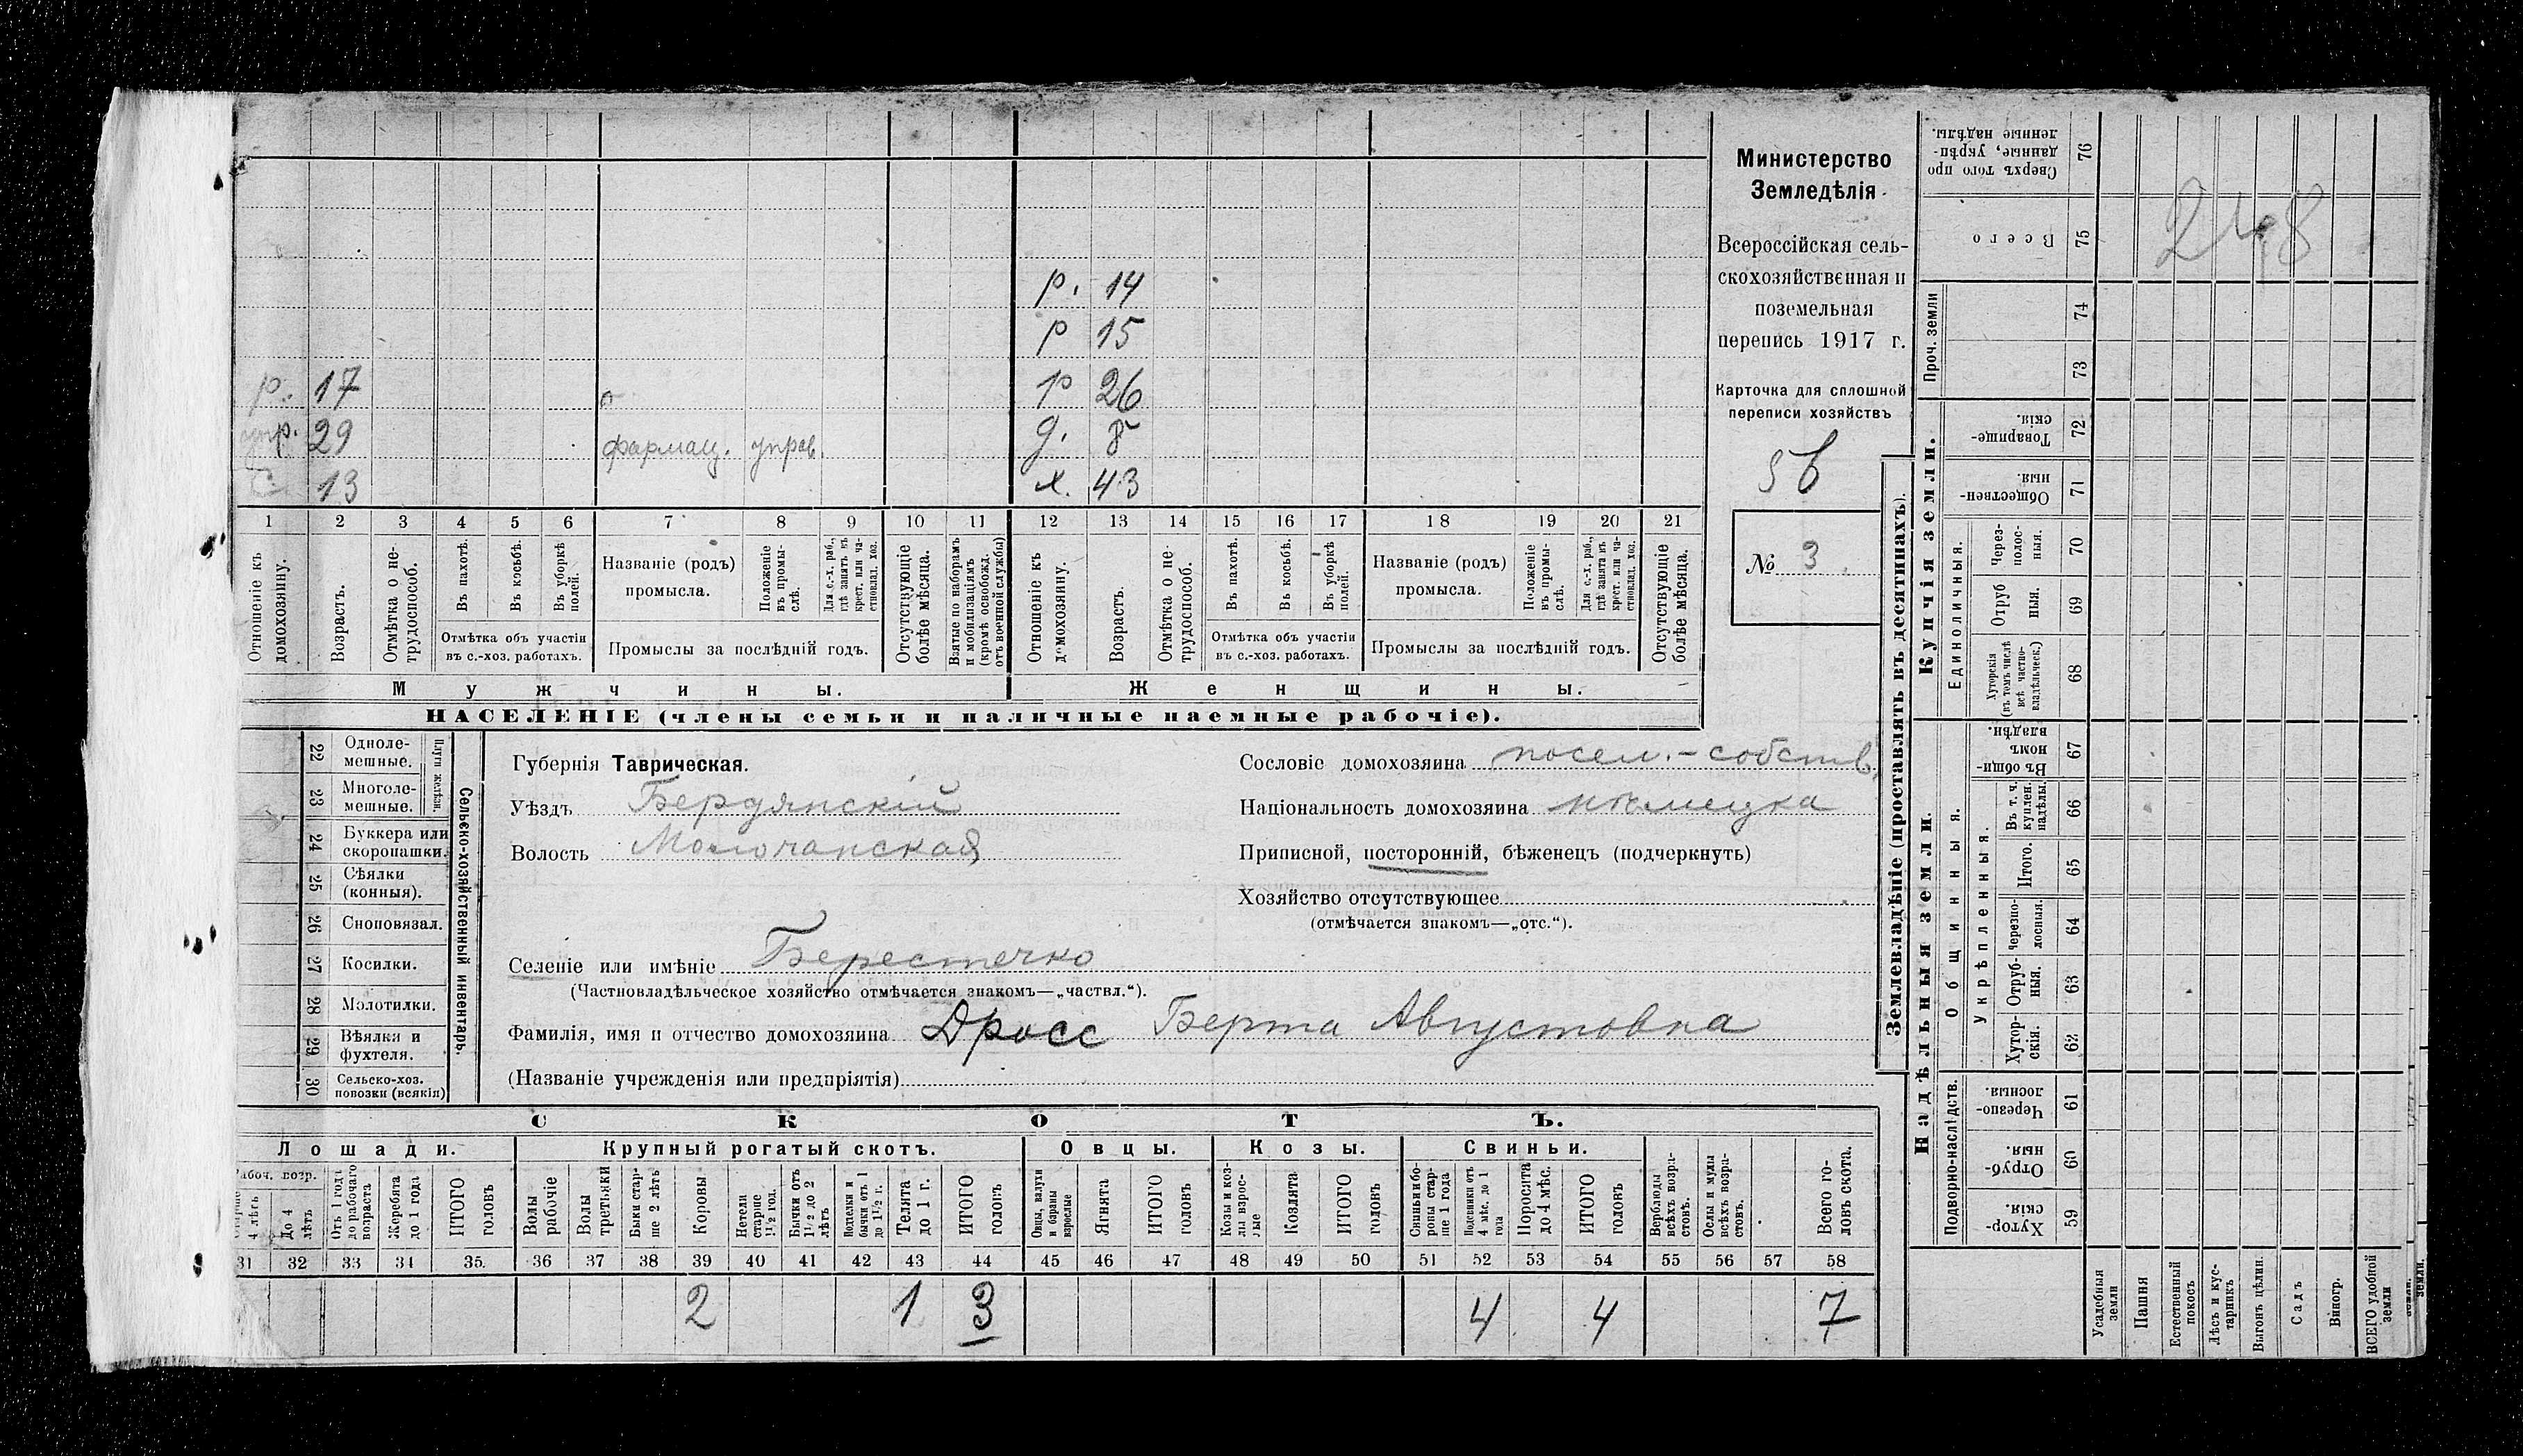 Министерство
Земледѣлія
Всероссійская сель-
скохозяйственная и
поземельная
перепись 1917 г.
Карточка для сплошной
переписи хозяйствъ
5б
№ 3
р. 14
р 15
р. 17 р 26
29 фармац. управ. д. 8
С. 13 х. 43
1 2 3 4 5 6 7 8 9 10 11 12 13 14 15 16 17 18 19 20 21
Отношеніе къ домохозяину.
Возрастъ.
Отмѣтка о не-трудоспособ.
Въ пахотѣ.
Въ косьбѣ.
Въ уборкѣ полей.
Отмѣтка объ участіи
въ с.-хоз. работахъ.
Названіе (родъ)
промысла.
Положеніе въ промы-слѣ.
Для с.-х. раб., гдѣ занятъ въ крест. или ча-стновлад. хоз.
Промыслы за послѣдній годъ.
Отсутствующіе болѣе мѣсяца.
Взятые по наборамъ и мобилизаціямъ (кромѣ освобожд. отъ военной службы)
Отношеніе къ домохозяину.
Возрастъ.
Отмѣтка о не-трудоспособ.
Въ пахотѣ.
Въ косьбѣ.
Въ уборкѣ полей.
Отмѣтка объ участіи
въ с.-хоз. работахъ.
Названіе (родъ)
промысла.
Положеніе въ промы-слѣ.
Для с.-х. раб., гдѣ занята въ крест. или ча-стновлад. хоз.
Промыслы за послѣдній годъ.
Отсутствующіе болѣе мѣсяца.
Мужчины. Женщины.
НАСЕЛЕНІЕ (члены семьи и наличные наемные рабочіе).
22 Одноле-
мешные.
23 Многоле-
мешные.
24 Буккера или
скоропашки.
25 Сѣялки
(конныя).
26 Сноповязал.
27 Косилки.
28 Молотилки.
29 Вѣялки и
фухтеля.
30 Сельско-хоз.
повозки (всякія)
Сельско-хозяйственный инвентарь.
Губернія Таврическая.
Уѣздъ Бердянскій
Волость Молочанская
Селеніе или имѣніе Берестечко
(Частновладѣльческое хозяйство отмѣчается знакомъ—„частвл.“).
Фамилія, имя и отчество домохозяина Дросс Берта Августовна
(Названіе учрежденія или предпріятія)
Сословіе домохозяина посел.-собств.
Національность домохозяина нѣмецка
Приписной, посторонній, бѣженецъ (подчеркнуть)
Хозяйство отсутствующее
(отмѣчается знакомъ—„отс.“).
СКОТЪ.
Лошади. Крупный рогатый скотъ. Овцы. Козы. Свиньи.
До 4 лѣтъ
Отъ 1 года до рабочаго возраста
Жеребята до 1 года
ИТОГО головъ
Волы рабочіе
Волы третьяки
Быки стар-ше 2 лѣтъ
Коровы
Нетели старше 1½ год.
Бычки отъ 1½ до 2 лѣтъ
Подтелки и бычки отъ 1 до 1½ г.
Телята до 1 г.
ИТОГО головъ
Овцы, валухи и бараны взрослые
Ягнята
ИТОГО головъ
Козы и коз-лы взрос-лые
Козлята
ИТОГО головъ
Свиньи и бо-ровы стар-ше 1 года
Подсвинки отъ 4 мѣс. до 1 года
Поросята до 4 мѣс.
ИТОГО головъ
Верблюды всѣхъ возра-стовъ.
Ослы и мулы всѣхъ возра-стовъ.
Всего го-ловъ скота.
31 32 33 34 35. 36 37 38 39 40 41 42 43 44 45 46 47 48 49 50 51 52 53 54 55 56 57 58
2 1 3 4 4 7
Землевладѣніе (проставлять въ десятинахъ).
Надѣльныя земли. Купчія земли. Проч. земли
Сверхъ того про-
данные, укрѣп-
ленные надѣлы. 76
Всего 75
74
73
Товарище-
скія. 72
Обществен-
ныя. 71
Единоличныя.
Через-полос-ныя. 70
Отруб ныя. 69
Хуторскія (въ томъ числѣ всѣ частно-владѣльческ.) 68
Общинныя.
Въ общи-
номъ
владѣн. 67
Укрѣпленныя.
Въ т. ч. куплен. надѣлы. 66
Итого. 65
Черезпо-лосныя. 64
Отруб-ныя. 63
Хутор-скія. 62
Подворно-наслѣдств.
Черезпо-
лосныя. 61
Отруб-
ныя. 60
Хутор-
скія. 59
Усадебныя земли
Пашня
Естественный покосъ
Лѣсъ и кус-тарникъ
Выгонъ цѣлин.
Садъ
Виногр.
ВСЕГО удобной земли
248